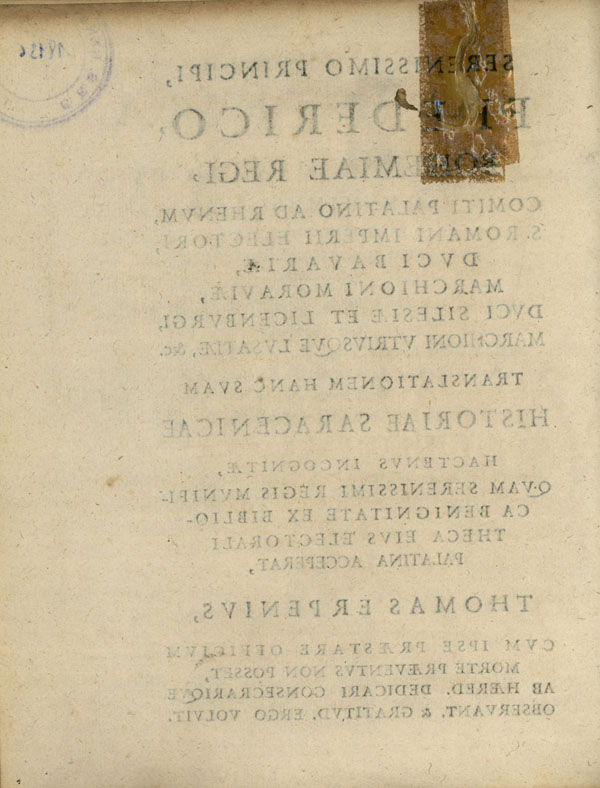 SERENISSIMO PRINCIPI,
FREDERICO,
BOHEMIAE REGI,
COMITI PALATINO AD RHENVM,
S. ROMANI IMPERII ELECTORI,
DVCI BAVARIÆ,
MARCHIONI MORAVIÆ,
DVCI SILESIÆ ET LICENBVRGI,
MARCHIONI VTRIVSQVE LVSATIÆ, &c.
TRANSLATIONEM HANC SVAM
HISTORIAE SARACENICAE
HACTENVS INCOGNITÆ,
QVAM SERENISSIMI REGIS MVNIFI-
CA BENIGNITATE EX BIBLIO-
THECA EIVS ELECTORALI
PALATINA ACCEPERAT,
THOMAS ERPENIVS,
CVM IPSE PRÆSTARE OFFICIVM
MORTE PRÆVENTVS NON POSSET,
AB HÆRED. DEDICARI CONSECRARIQVE
OBSERVANT. & GRATITVD. ERGO VOLVIT.